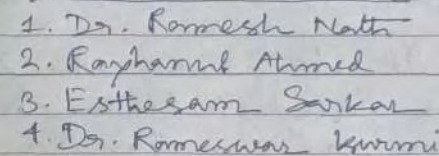 1. Dr. Ramesh Nath
2. Rayhanul Ahmed
3. Esthesam Sarkar
4. Dr. Rameswar Kurmi